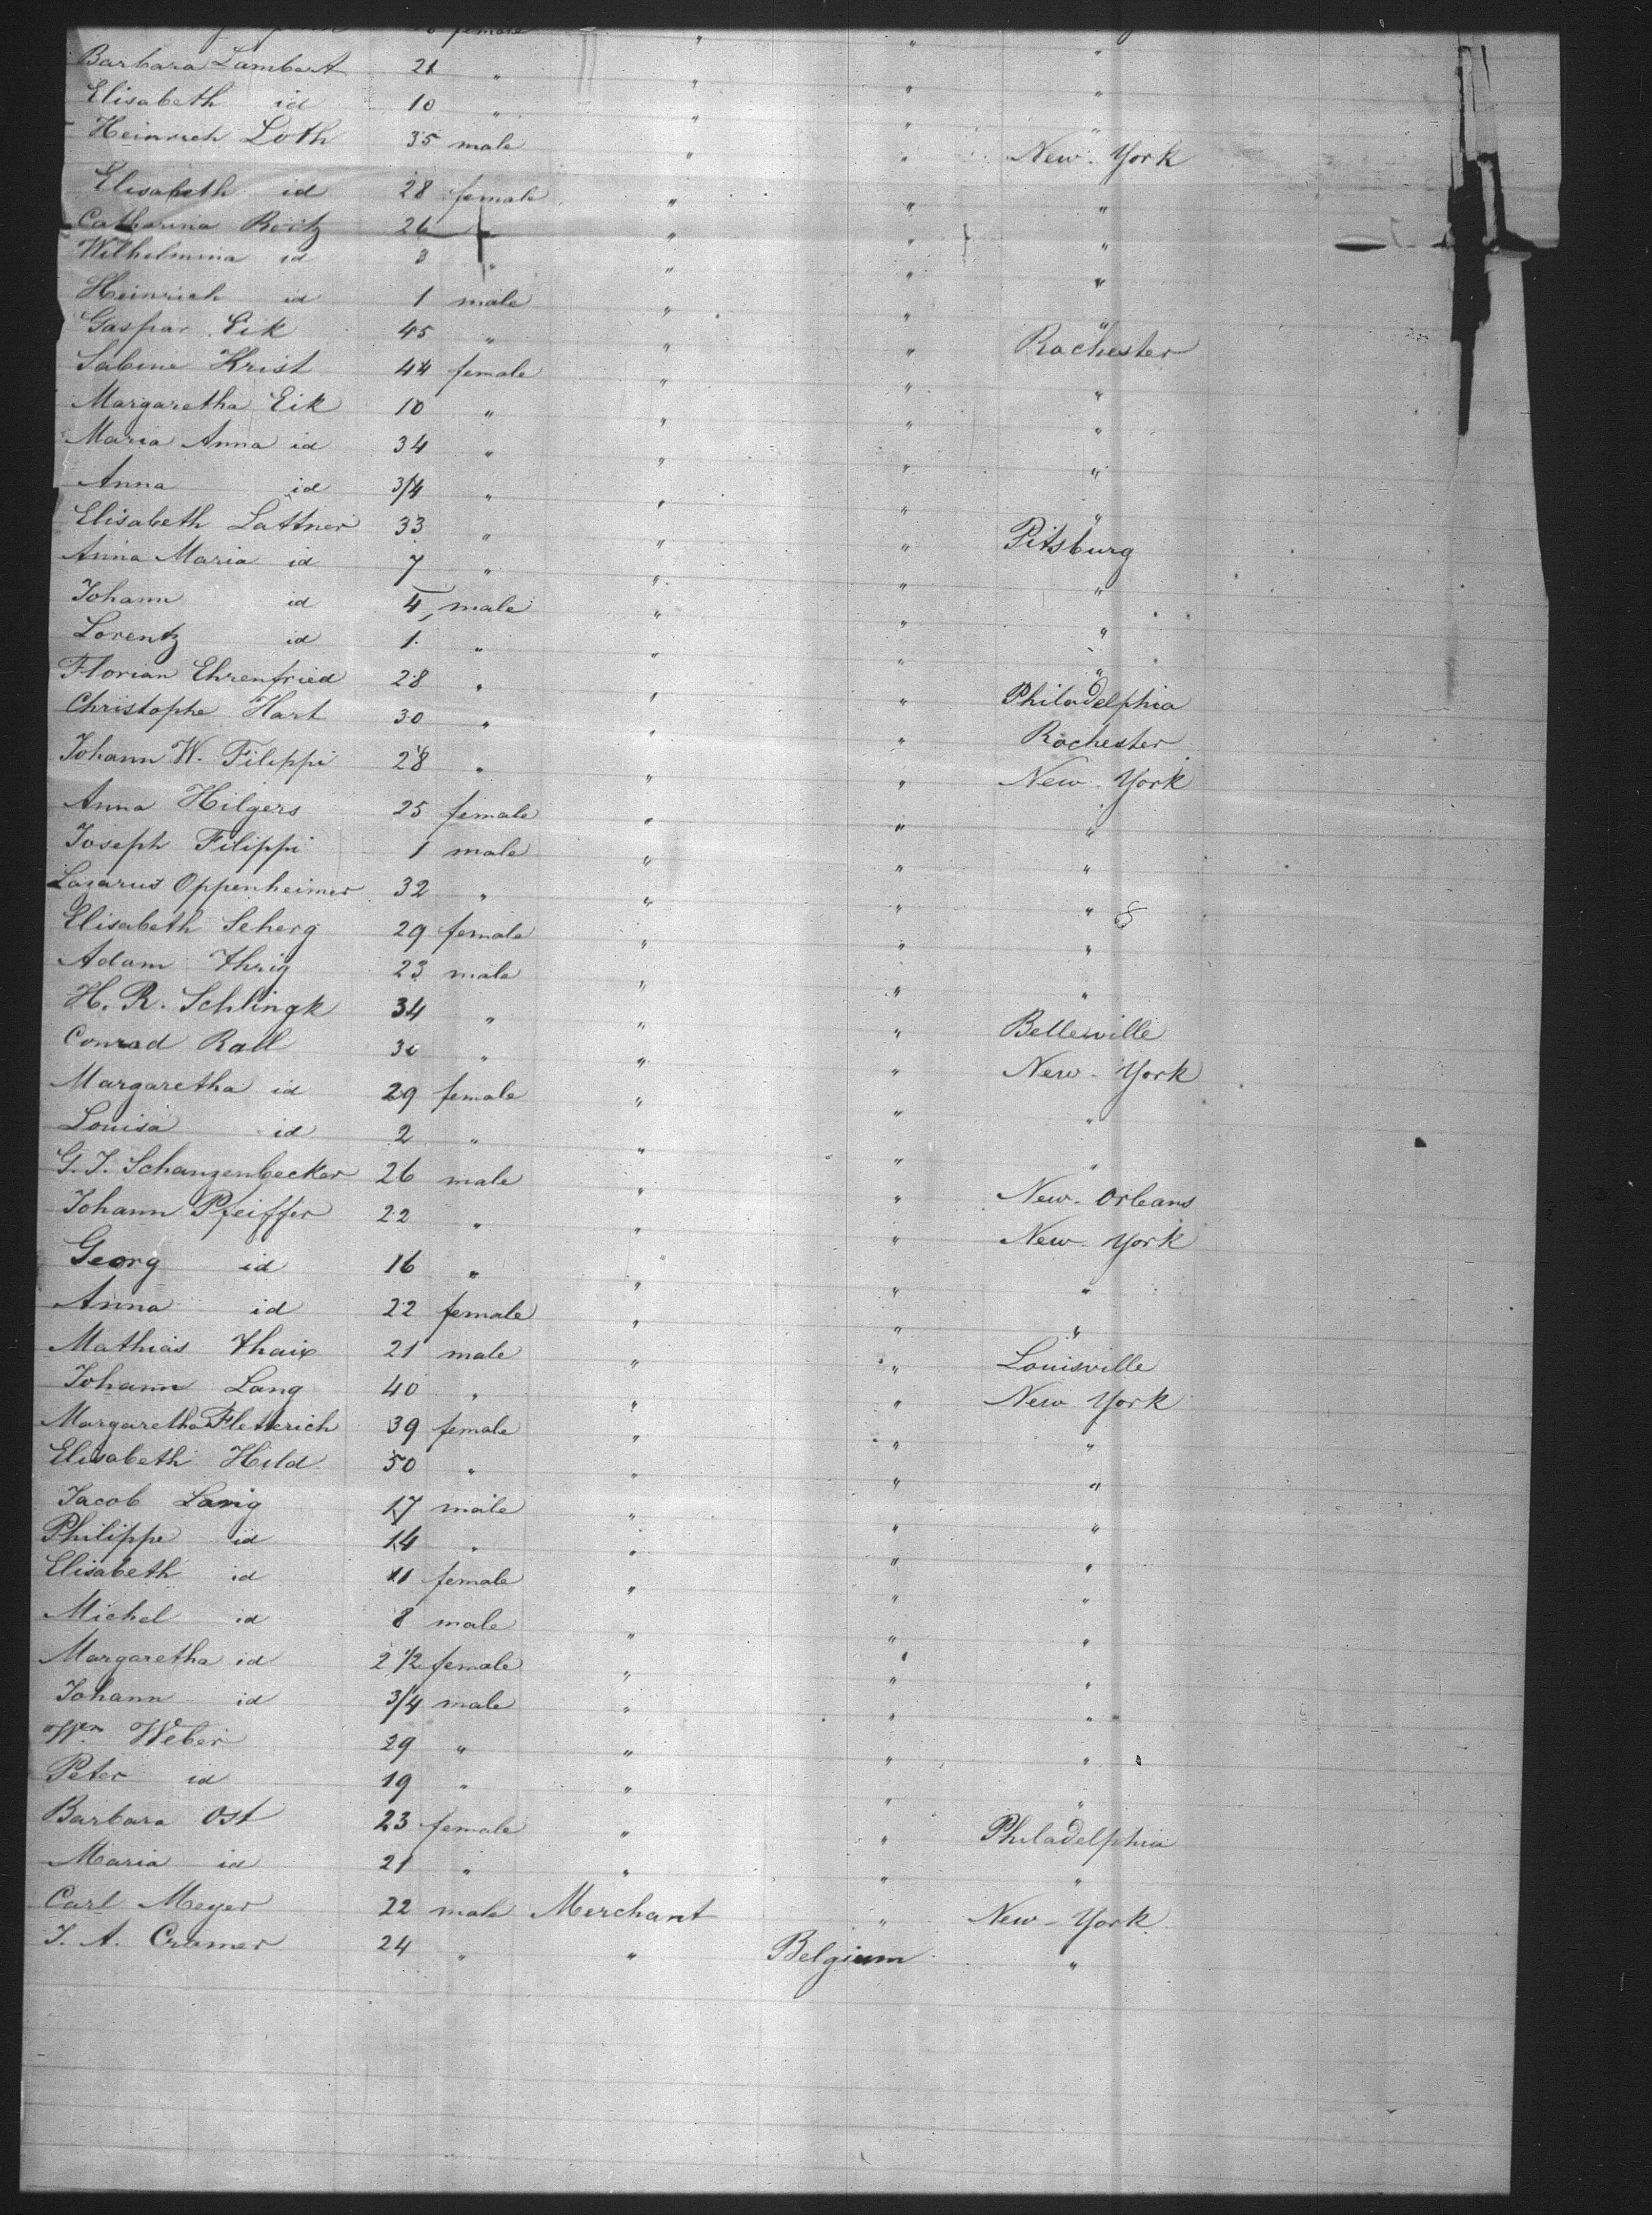 female " " "
Barbara Lambert 21 " " " "
Elisabeth id 10 " " " "
Heinrich Loth 35 male " " New-York
Elisabeth id 28 female " " "
Catharina Reitz 26 " " " "
Wilhelmina id 3 " " " "
Heinrich id 1 male " " "
Gaspar Eik 45 " " " Rochester
Sabine Krist 44 female " " "
Margaretha Eik 10 " " " "
Maria Anna id 34 " " " "
Anna id 3/4 " " " "
Elisabeth Lattner 33 " " " Pitsburg
Anna Maria id 7 " " " "
Johann id 4 male " " "
Lorentz id 1 " " " "
Florian Ehrenfried 28 " " " Philadelphia
Christophe Hart 30 " " " Rochester
Johann W. Filippi 28 " " " New-York
Anna Hilgers 25 female " " "
Joseph Filippi 1 male " " "
Lazarus Oppenheimer 32 " " " "
Elisabeth Scherg 29 female " " "
Adam Ihrig 23 male " " "
H. R. Schlingk 34 " " " Belleville
Conrad Rall 30 " " " New-York
Margaretha id 29 female " " "
Louisa id 2 " " " "
G. J. Schanzenbecker 26 male " " New-Orleans
Johann Pfeiffer 22 " " " New-York
Georg id 16 " " " "
Anna id 22 female " " "
Mathias Thaix 21 male " " Louisville
Johann Lang 40 " " " New York
Margaretha Fletterich 39 female " " "
Elisabeth Hild 50 " " " "
Jacob Lang 17 male " " "
Philippe id 14 " " " "
Elisabeth id 11 female " " "
Michel id 8 male " " "
Margaretha id 2 1/2 female " " "
Johann id 3/4 male " " "
Wm Weber 29 " " " "
Peter id 19 " " " "
Barbara Ost 23 female " " Philadelphia
Maria id 21 " " " "
Carl Meyer 22 male Merchant " New-York
J. A. Cramer 24 " " Belgium "